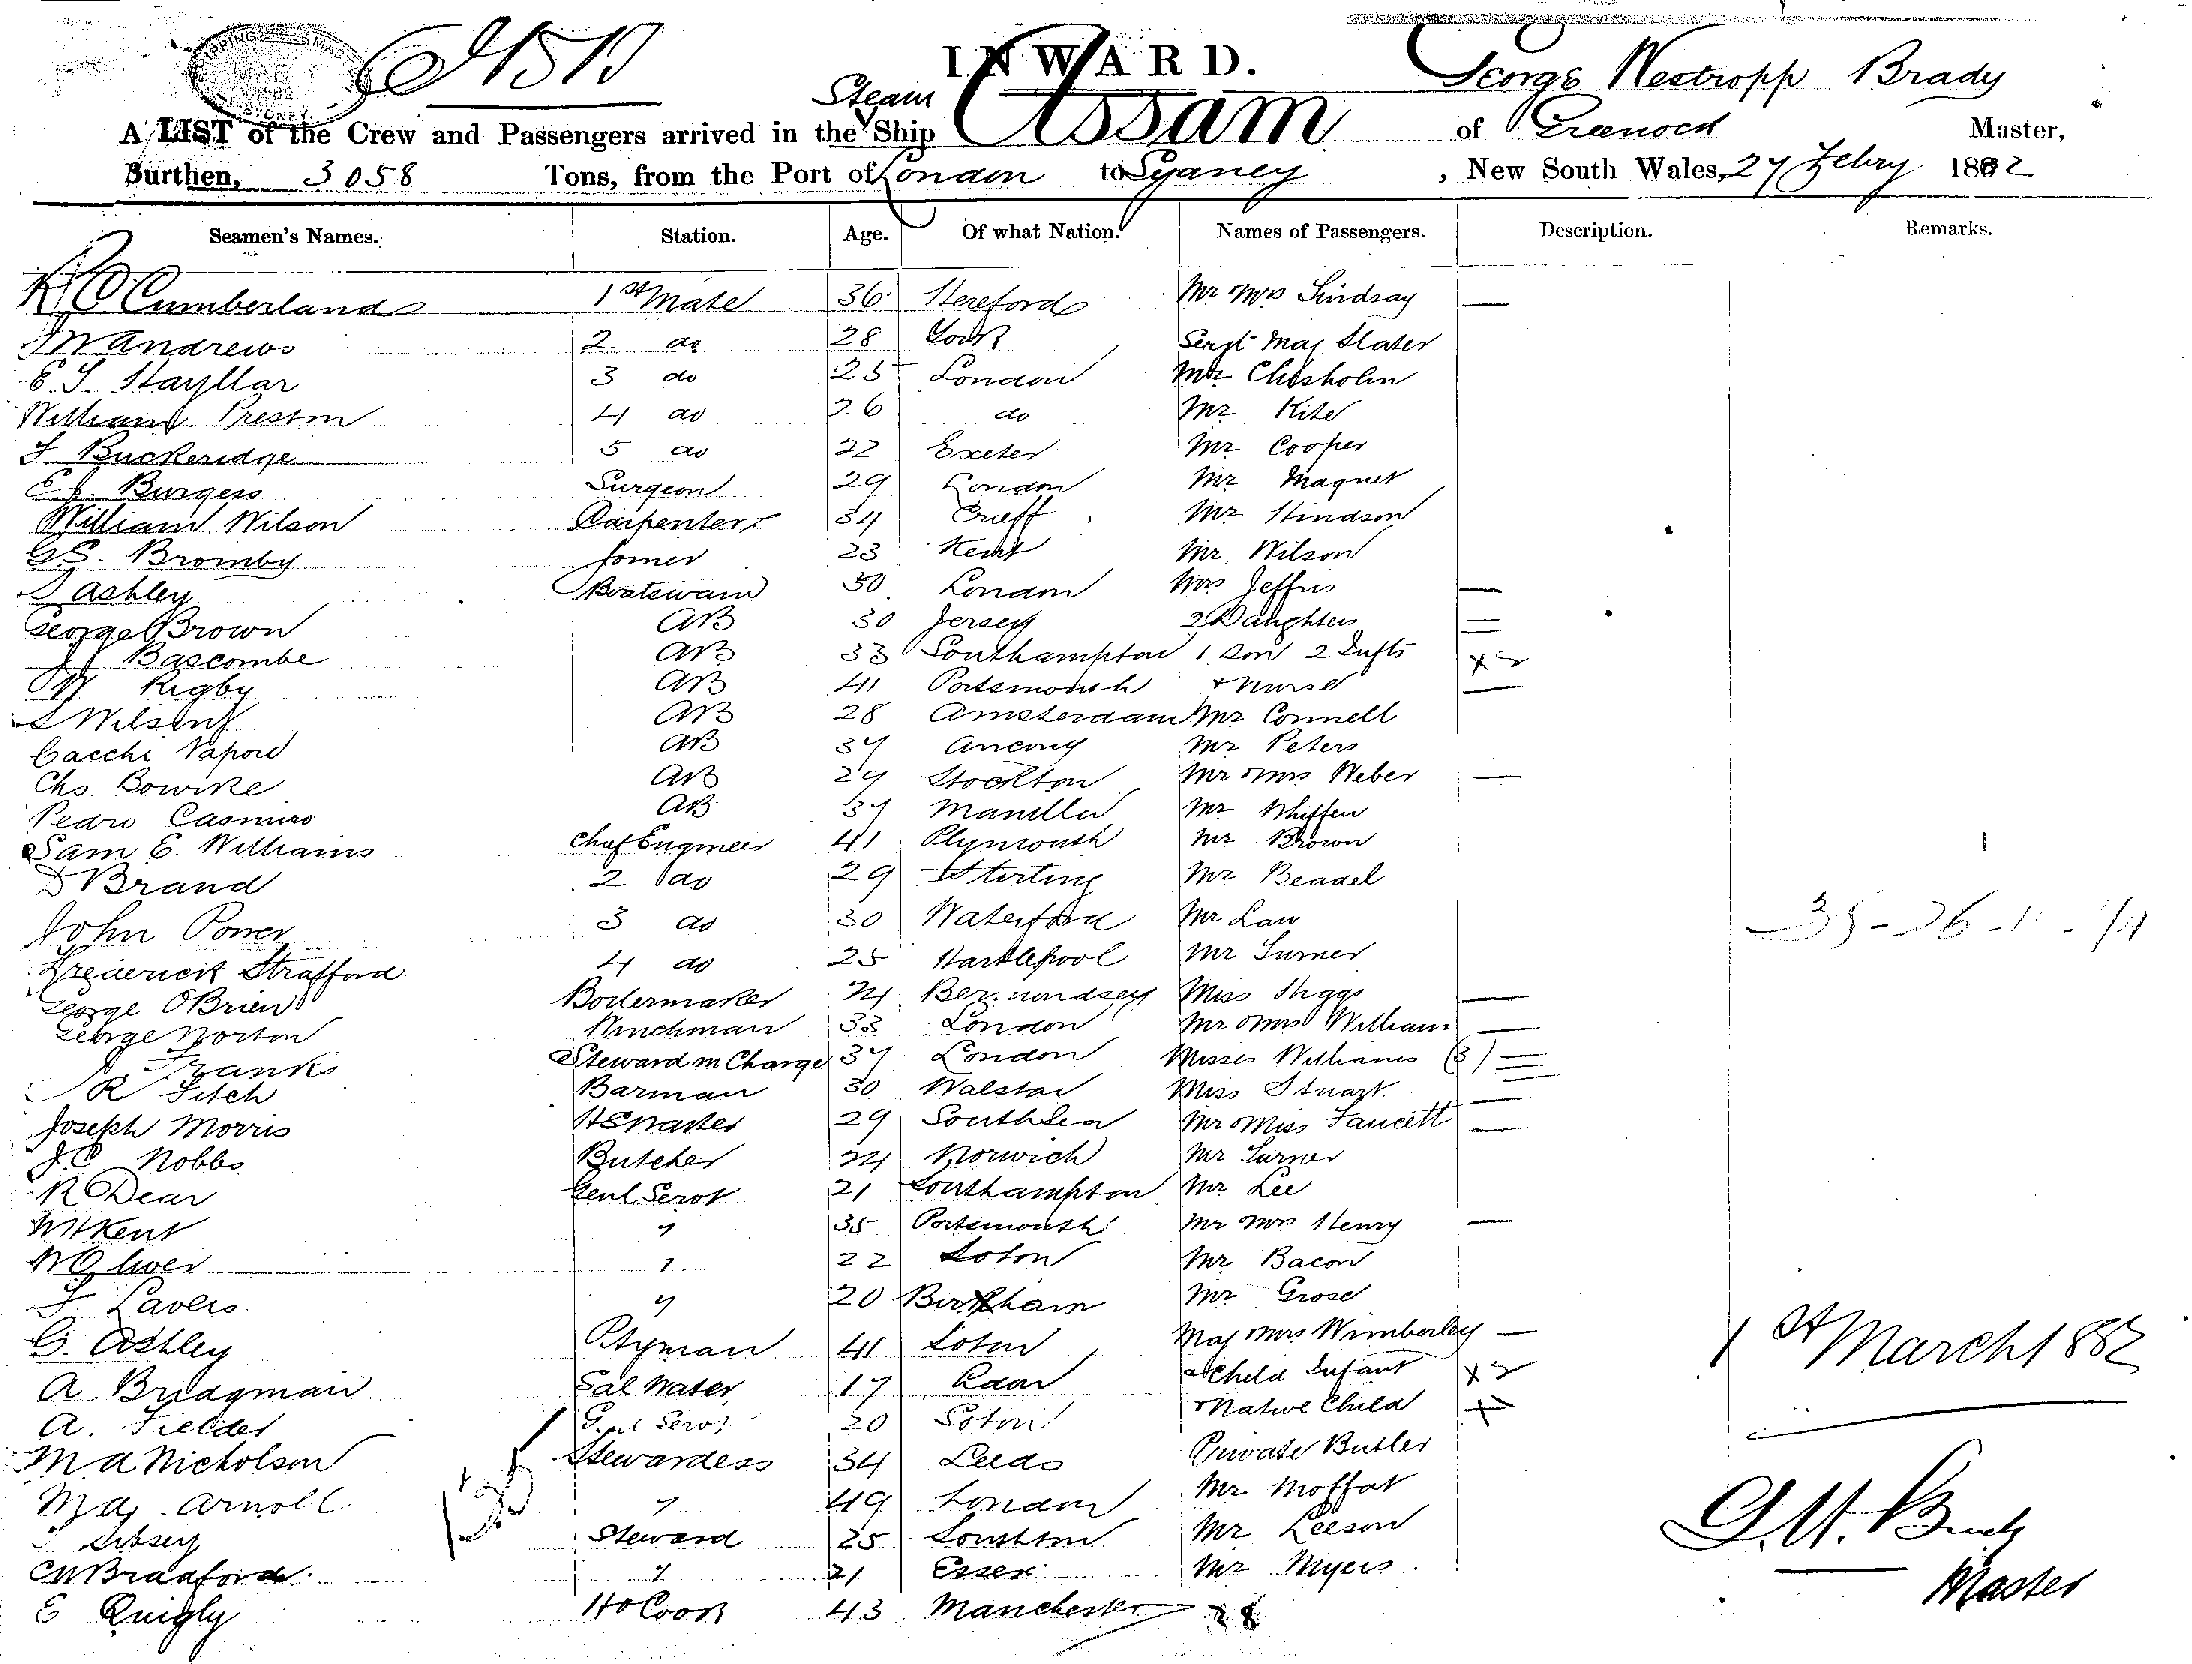 INWARD.
George Westropp Brady
A LIST of the Crew and Passengers arrived in the Steam Ship Assam of Greenock Master,
Burthen, 3058 Tons, from the Port of London to Sydney, New South Wales, 27 Febry 1882
Seamen's Names. Station. Age. Of what Nation. Names of Passengers. Description. Remarks.
Cumberland 1st Mate 36 Hereford Mr & Mrs Lindsay —
Andrews 2 do 28 York Sergt Maj Slater
E. J. Stayllar 3 do 25 London Chisholm
William Preston 4 do 26 do Mr Kite
J Buckeridge 5 do 22 Exeter Mr Cooper
Burgess Surgeon 29 London Mr Magnet
William Wilson Carpenter 34 Crieff Mr Hindson
Bromby Joiner 23 Kent Mr Wilson
Ashley Boatswain 30 London Mrs Jeffris —
George Brown AB 30 Jersey 2 Daughters
Bascombe AB 33 Southampton 1 son 2 Infts
Rigby AB 41 Portsmouth + Nurse —
Wilson AB 28 Amsterdam Mr Connell
Cacchi AB 37 Mr Peters
Chs. Bowike AB 27 Stockton Mr & Mrs Weber —
Pedro Casmiro AB 37 Manilla Mr Whiffen
Sam E. Williams Chief Engineer 41 Plymouth Mr Brown
D Brand 2 do 29 Stirling Mr Beadel
John Power 3 do 30 Waterford Mr Law
Frederick Strafford 4 do 25 Hartlepool Mr Turner
George OBrien Boilermaker 24 Bermondsey Miss Higgs —
George Norton Winchman 33 London Mr & Mrs Williams —
Franks Steward in Charge 37 London Misses Williams (3)
R Fitch Barman 30 Miss Stuart —
Joseph Morris 29 Southsea Mr & Miss Faucett —
J. C Nobbs Butcher 24 Norwich Mr Turner
R Dear Genl Servt 21 Southampton Mr Lee
W H Kent " 35 Portsmouth Mr & Mrs Henry —
W Oliver " 22 Soton Mr Bacon
Lavers " 20 Mr Grose
G. Ashley Ptyman 41 Soton Maj & Mrs Wimberley —
A Bridgman Sal Water 17 Child Infant
A. Fielder Genl Servt 20 Soton Native Child
M A Nicholson Stewardess 34 Leeds Private Butler
Arnoll " 49 London Mr Moffat
Libsey Steward 25 Southton Mr Leeson
Bradford " 21 Essex Mr Myers
E Quigly Ho Cook 43 Manchester 28
1st March 1882
G. W. Brady
Master